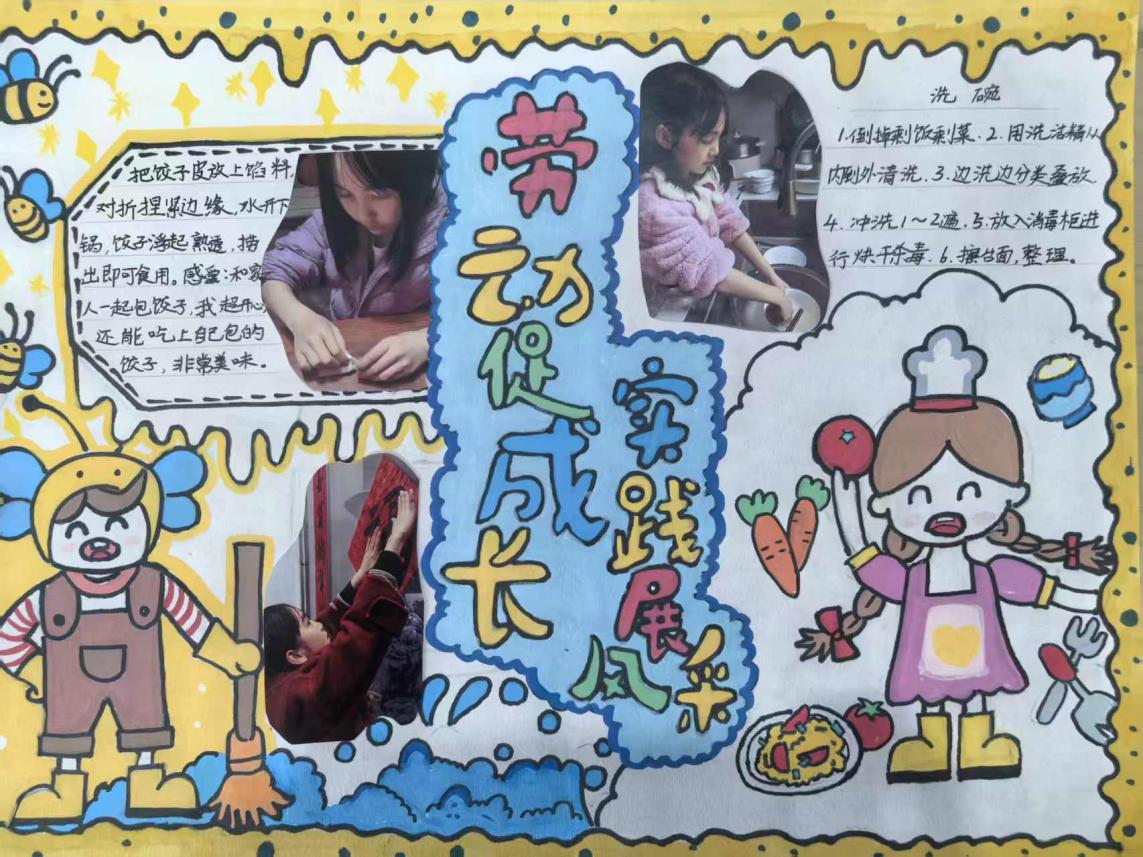 劳动促成长
实践展风采
把饺子皮放上馅料,
对折捏紧边缘,水开下
锅,饺子浮起熟透,捞
出即可食用。感爱:和家
人一起包饺子,我超开心,
还能吃上自己包的
饺子,非常美味。
洗碗
1.倒掉剩饭剩菜.2.用洗洁精从
内到外清洗.3.边洗边分类叠放.
4.冲洗1~2遍.5.放入消毒柜进
行烘干杀毒.6.擦台面,整理。